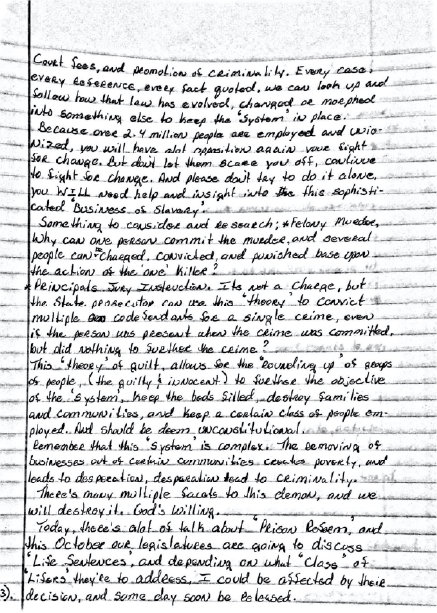 Court fees, and promotion of criminality. Every case,
every reference, every fact quoted, we can look up and
follow how that law has evolved, changed or morphed
into something else to keep the "system" in place.
Because over 2.4 million people are employed and unio-
nized, you will have alot opposition again your fight
for change. But don't let them scare you off, continue
to fight for change. And please don't try to do it alone,
you WILL need help and insight into this sophisti-
cated "Business of Slavery".
Something to consider and research; *Felony Murder,
Why can one person commit the murder, and several
people can be charged, convicted, and punished base upon
the action of the 'one' killer?
* Principals Jury Instruction. Its not a charge, but
the State prosecutor can use this "theory" to convict
multiple codefendants for a single crime, even
if the person was present when the crime was committed,
but did nothing to further the crime?
This "theory of guilt, allows for the "rounding up" of groups
of people, (the guilty & innocent) to further the objective
of the "system, keep the beds filled, destroy families
and communities, and keep a certain class of people em-
ployed. And should be deem unconstitutional.
Remember that this "system" is complex. The removing of
businesses out of certain communities creates poverty, and
leads to desperation, desperation lead to criminality.
There's many multiple facets to this demon, and we
will destroy it. God's willing.
Today, there's alot of talk about "Prison Reform," and
this October our legislatures are going to discuss
"Life Sentences", and depending on what "Class" of
"Lifers" they're to address, I could be affected by their
3). decision, and some day soon be released.